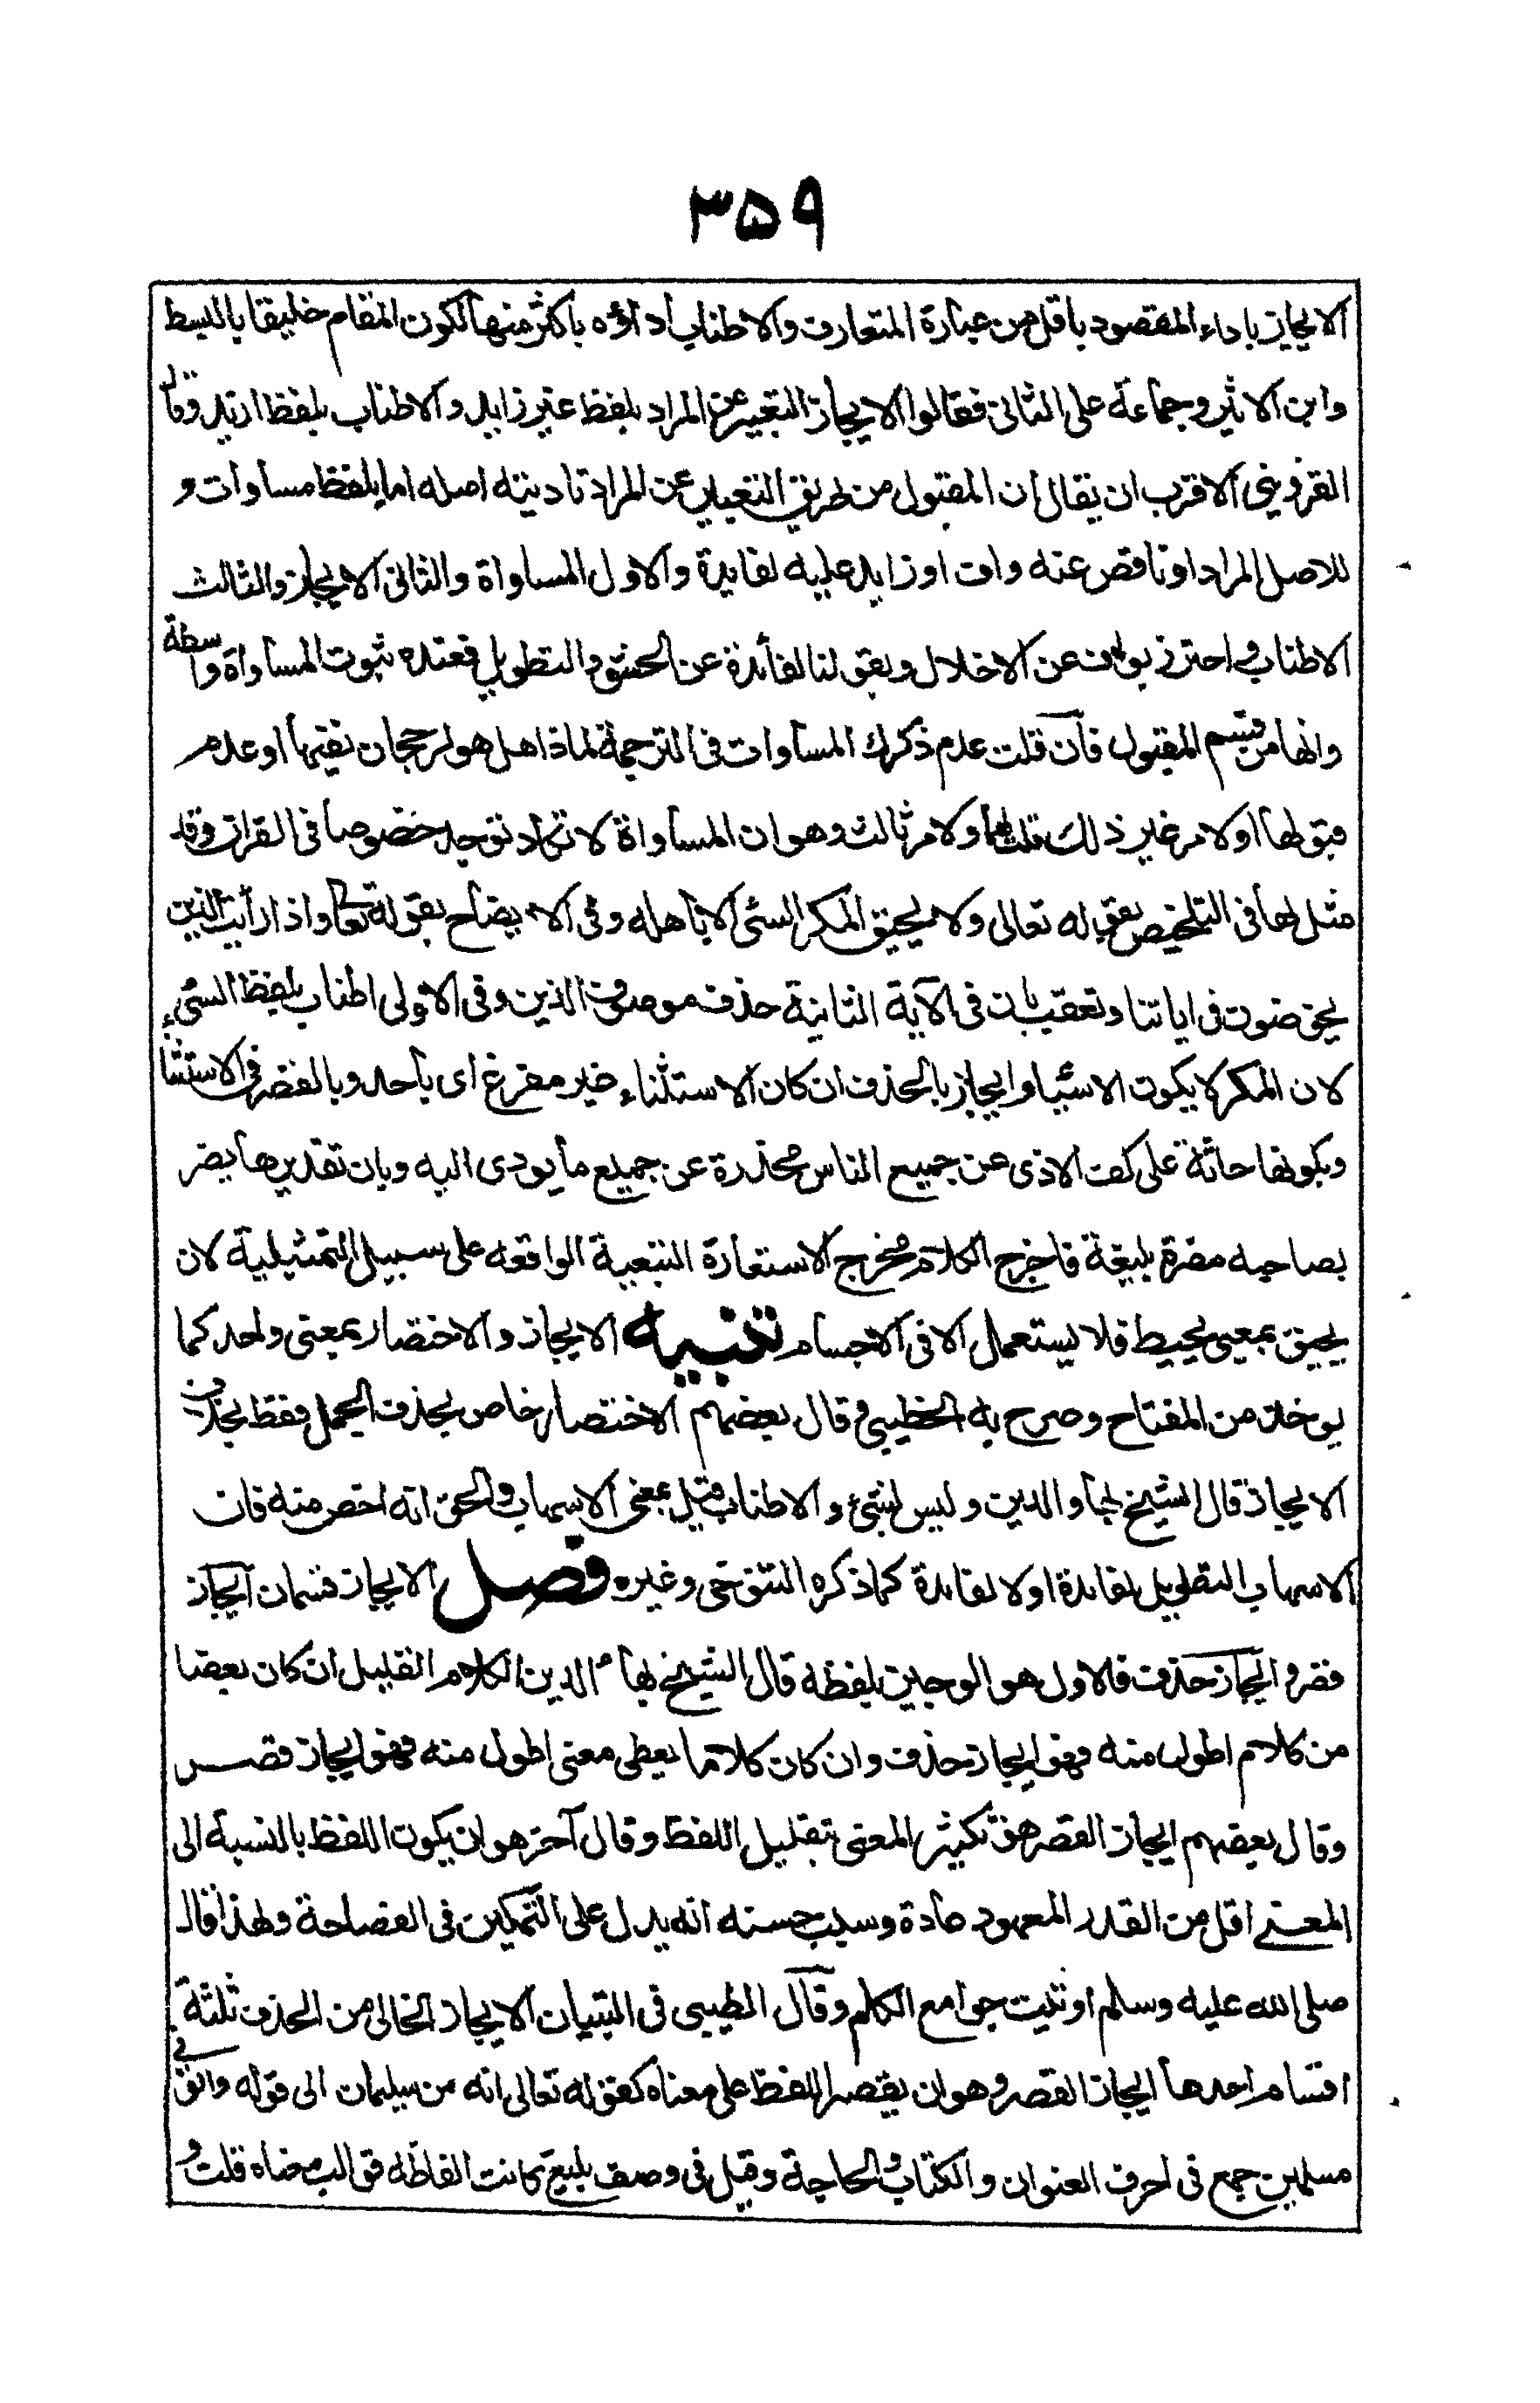 ۳۵۹
الايجاز باداء المقصود باقل من عبارة المتعارف والاطناب اداؤه باكثر منها لكون المقام خليقا بالبسط
وابن الاثير وجماعة على الثانى فقالوا الايجاز التعبير عن المراد بلفظ غير زايد والاطناب بلفظ ازيد وقال
القزوينى الاقرب ان يقال ان المقبول من طريق التعبير عن المراد تادينه اصله اما بلفظ مساوات و
للاصل المراد او ناقص عنه واف او زايد عليه لفايدة والاول المساواة والثانى الايجاز والثالث
الاطناب واحترز بواف عن الاخلال وبقولنا لفائدة عن الحشو والتطويل فعنده ثبوت المساواة واسطة
وانها من قسم المقبول فان قلت عدم ذكرك المساوات فى الترجمة لماذا هل هو لرجحان نفيها او عدم
قبولها او لامر غير ذلك قلت لهما ولامر ثالث وهو ان المساواة لا تكاد توجد خصوصا فى القران وقد
مثل لها فى التلخيص بقوله تعالى ولا يحيق المكر السئ الا باهله وفى الايضاح بقوله تعالى واذا رأيت الذين
يخوضون فى اياتنا وتعقب بان فى الآية الثانية حذف موصوف الذين وفى الاولى اطناب بلفظ السئ
لان المكر لا يكون الا سيئا وايجاز بالحذف ان كان الاستثناء غير مفرغ اى باحد وبالقصر فى الاستثناء
وبكونها حاثة على كف الاذى عن جميع الناس محذرة عن جميع ما يودى اليه وبان تقديرها يضر
بصاحبه مضرة بليغة فاخرج الكلام مخرج الاستعارة التبعية الواقعه على سبيل التمثيلية لان
يحيق بمعنى يحيط فلا يستعمل الا فى الاجسام تنبيه الايجاز والاختصار بمعنى واحد كما
يوخذ من المفتاح وصرح به الطيبى وقال بعضهم الاختصار خاص بحذف الجمل فقط بخلاف
الايجاز قال الشيخ بهاؤ الدين وليس بشئ والاطناب قيل بمعنى الاسهاب والحق انه اخص منه فان
الاسهاب التطويل لفايدة او لا لفايدة كما ذكره التنوخى وغيره فصل الايجاز قسمان ايجاز
قصر وايجاز حذف فالاول هو الوجيز بلفظه قال الشيخ بهاء الدين الكلام القليل ان كان بعضا
من كلام اطول منه فهو ايجاز حذف وان كان كلاما يعطى معنى اطول منه فهو ايجاز قصر
وقال بعضهم ايجاز القصر هو تكثير المعنى بتقليل اللفظ وقال آخر هو ان يكون اللفظ بالنسبة الى
المعنى اقل من القدر المعهود عادة وسبب حسنه انه يدل على التمكين فى الفصاحة ولهذا قال
صلى الله عليه وسلم اوتيت جوامع الكلم وقال الطيبى فى التبيان الايجاز الخالى من الحذف ثلثة
اقسام احدها ايجاز القصر وهو ان يقصر اللفظ على معناه كقوله تعالى انه من سليمان الى قوله واتونى
مسلمين جمع فى احرف العنوان والكتاب والحاجة وقيل فى وصف بليغ كانت الفاظه قوالب معناه قلت و